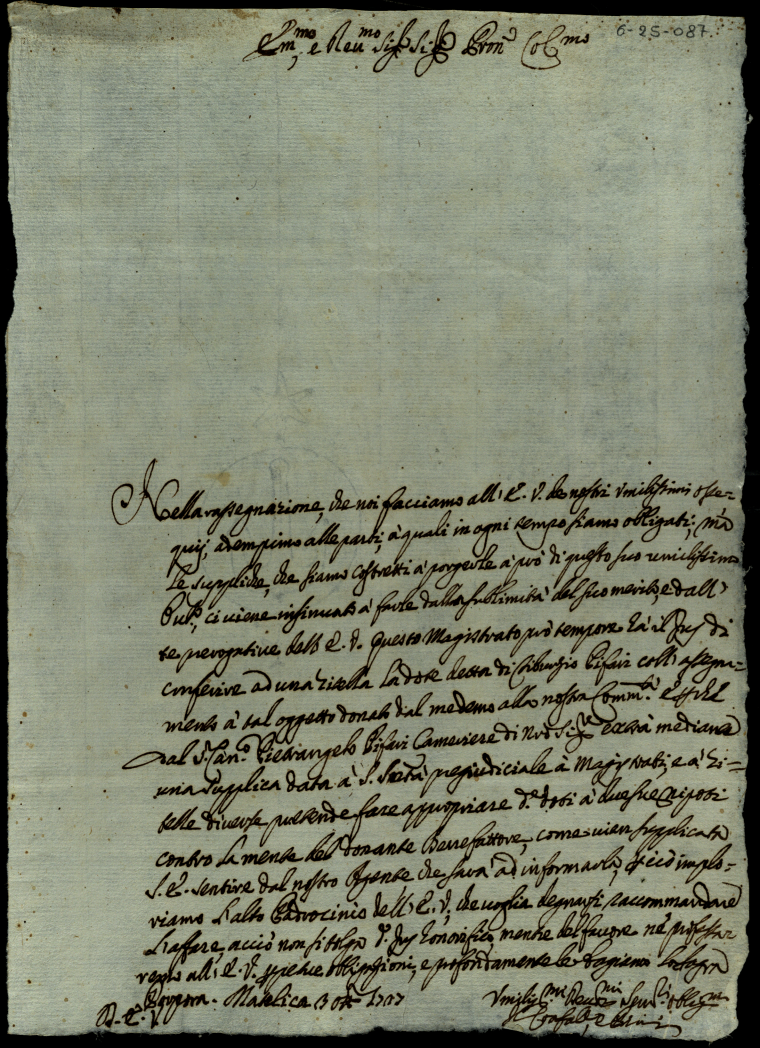 6-25-087.
Em.mo, e Reu.mo Sig.r Sig.r Pron Col.mo
Nella rassegnazione, che noi facciamo all'E. V. de nostri vmilissimi osse=
quij, adempimo alle parti, à quali in ogni tempo siamo obligati; mà
le suppliche, che siamo costretti à porgerle à prò di questo suo vmilissimo
Pub.co, ci viene insinuato à farle dalla sublimità del suo merito, e dall'
te prerogative dell'E. V. Questo Magistrato prò tempore hà il Jus di
conferire ad una Zitella la dote detta di Ciburzio Pifari coll'assegna=
mento à tal oggetto donato dal medemo alla nostra Comm.à
dal S. Pietrangelo Pifari Cameriere di Nro Sig.re mediante
una supplica data à S. Stà pregiudiciale à Magistrati, e à Zi=
telle diverse pretende fare appropriare d.e doti à due sue Nipoti
contro la mente del donante Benefattore, come vien supplicata
S. E. sentire dal nostro Agente che sarà ad informarla, e ciò implo=
riamo l'alto Padrocinio dell'E. V., che voglia degnarsi raccommandare
l'affare, acciò non si tolga d.o Jus honorifico, mentre del favore ne professar
remo all'E. V. perpetue obligazioni, e profondamente le bagiamo la sagra
Porpora. Matelica 3 ott. 1727
D. E. V.
Vmilis.mi Deuo.mi Seru.ri oblig.mi